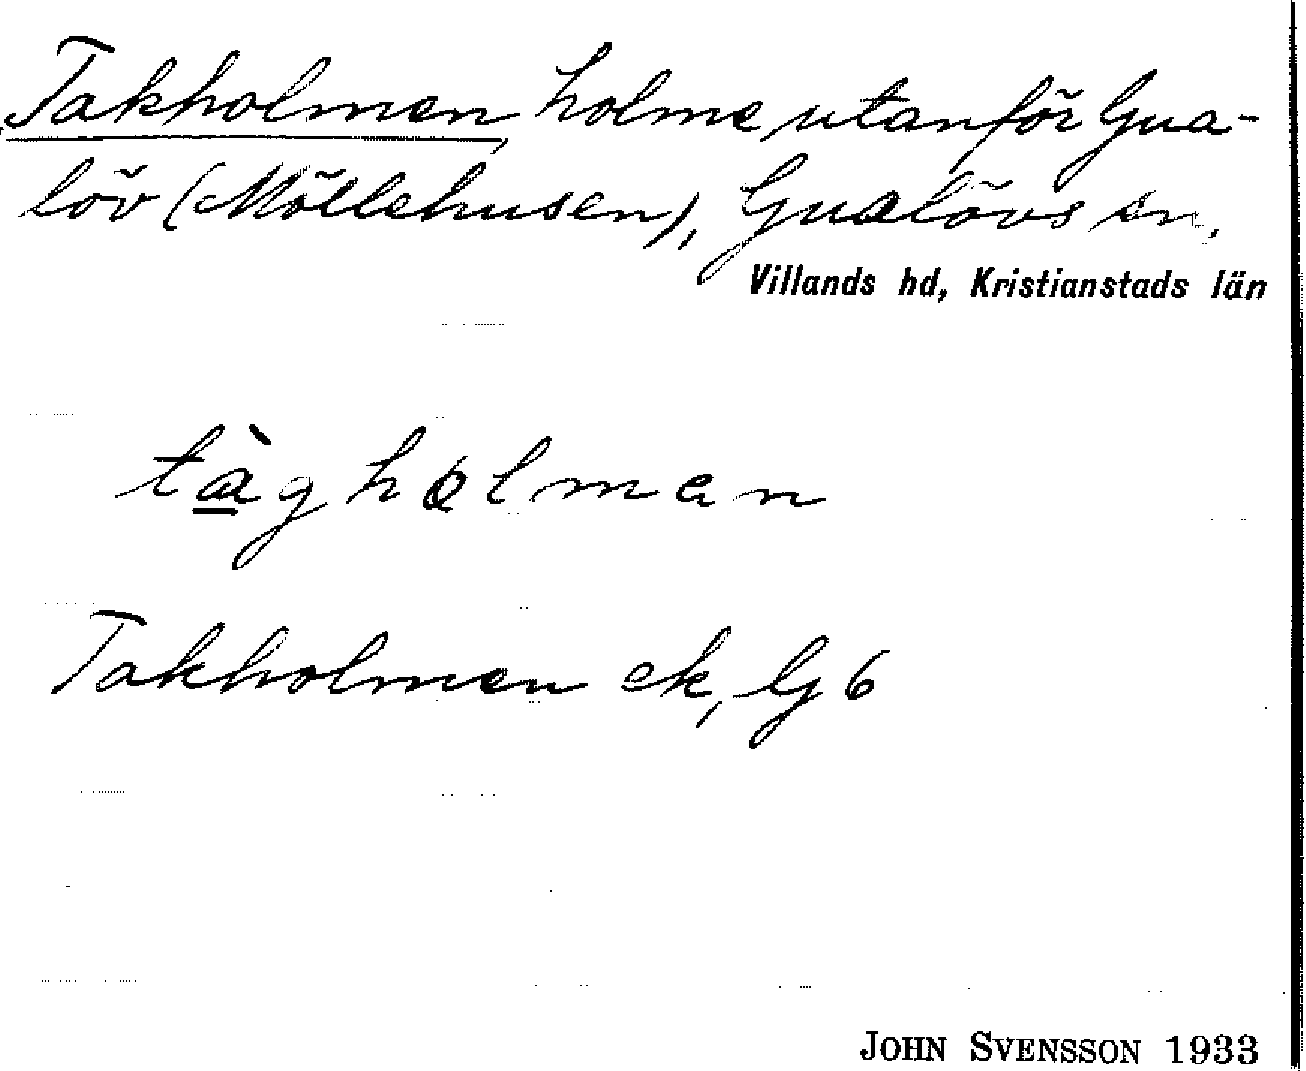 Takholmen holme utanför Gua-
löv (Möllehusen), Gualövs sn,
Villands hd, Kristianstads län
tàghòlmen
Takholmen ek, G 6
JOHN SVENSSON 1933